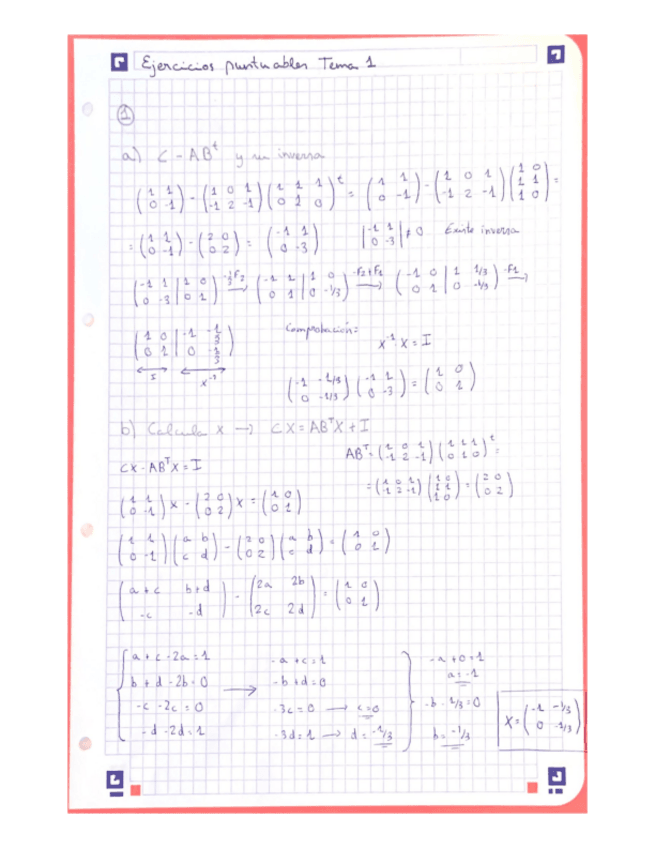 Ejercicios puntuables Tema 1
①
a) C - ABᵗ y su inversa
(1 1; 0 -1) - (1 0 1; -1 2 -1)(1 1 1; 0 1 0)ᵗ = (1 1; 0 -1) - (1 0 1; -1 2 -1)(1 0; 1 1; 1 0) =
= (1 1; 0 -1) - (2 0; 0 2) = (-1 1; 0 -3) |-1 1; 0 -3| ≠ 0 Existe inversa
(-1 1 | 1 0; 0 -3 | 0 1) -⅓F2→ (-1 1 | 1 0; 0 1 | 0 -1/3) -F2+F1→ (-1 0 | 1 1/3; 0 1 | 0 -1/3) -F1→
(1 0 | -1 -1/3; 0 1 | 0 -1/3) Comprobación:
I X⁻¹ X⁻¹·X = I
(-1 -1/3; 0 -1/3)(-1 1; 0 -3) = (1 0; 0 1)
b) Calcula X → CX = ABᵀX + I
CX - ABᵀX = I ABᵀ = (1 0 1; -1 2 -1)(1 1 1; 0 1 0)ᵗ =
= (1 0 1; -1 2 -1)(1 0; 1 1; 1 0) = (2 0; 0 2)
(1 1; 0 -1)X - (2 0; 0 2)X = (1 0; 0 1)
(1 1; 0 -1)(a b; c d) - (2 0; 0 2)(a b; c d) = (1 0; 0 1)
(a+c b+d; -c -d) - (2a 2b; 2c 2d) = (1 0; 0 1)
a + c - 2a = 1 -a + c = 1 -a + 0 = 1
b + d - 2b = 0 → -b + d = 0 a = -1
-c - 2c = 0 -3c = 0 → c = 0 -b - 1/3 = 0
-d - 2d = 1 -3d = 1 → d = -1/3 b = -1/3
X = (-1 -1/3; 0 -1/3)